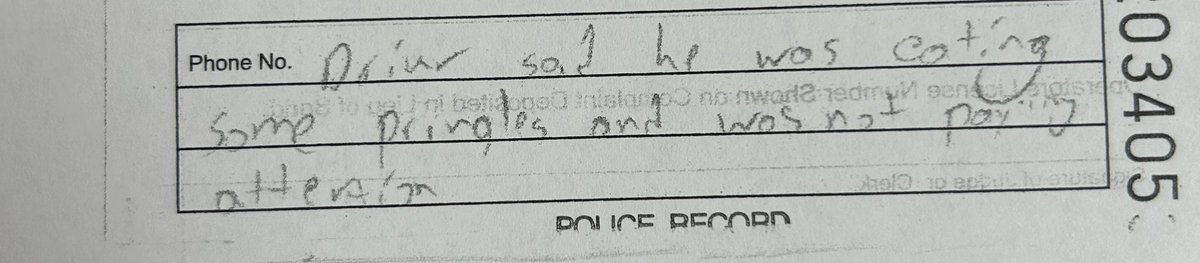 Phone No. Driver said he was eating
some pringles and was not paying
attention
POLICE RECORD
03405